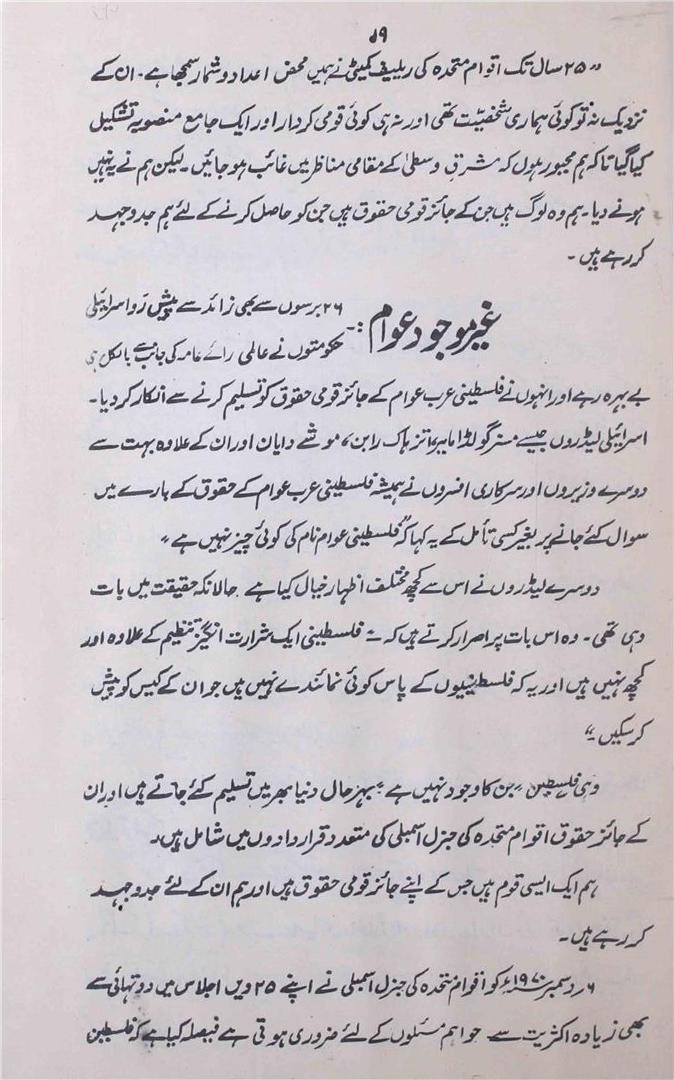 ۱۹
"۲۵ سال تک اقوام متحدہ کی ریلیف کمیٹی نے ہمیں محض اعداد و شمار سمجھا ہے۔ ان کے
نزدیک نہ تو کوئی ہماری شخصیّت تھی اور نہ ہی کوئی قومی کردار اور ایک جامع منصوبہ تشکیل
کیا گیا تاکہ ہم مجبور ہوں کہ مشرقِ وسطیٰ کے مقامی مناظر میں غائب ہو جائیں۔ لیکن ہم نے یہ نہیں
ہونے دیا۔ ہم وہ لوگ ہیں جن کے جائز قومی حقوق ہیں جن کو حاصل کرنے کے لئے ہم جدوجہد
کر رہے ہیں۔
غیر موجود عوام :۔ ۲۶ برسوں سے بھی زائد سے پیش رَو اسرائیلی
حکومتوں نے عالمی رائے عامہ کی جانب سے بالکل ہی
بے بہرہ رہے اور انہوں نے فلسطینی عرب عوام کے جائز قومی حقوق کو تسلیم کرنے سے انکار کر دیا۔
اسرائیلی لیڈروں جیسے مسز گولڈا مایر، اتزہاک رابن، موشے دایان اور ان کے علاوہ بہت سے
دوسرے وزیروں اور سرکاری افسروں نے ہمیشہ فلسطینی عرب عوام کے حقوق کے بارے میں
سوال کئے جانے پر بغیر کسی تأمل کے یہ کہا کہ "فلسطینی عوام نام کی کوئی چیز نہیں ہے"
دوسرے لیڈروں نے اس سے کچھ مختلف اظہار خیال کیا ہے۔ حالانکہ حقیقت میں بات
وہی تھی۔ وہ اس بات پر اصرار کرتے ہیں کہ "فلسطینی ایک شرارت انگیز تنظیم کے علاوہ اور
کچھ نہیں ہیں اور یہ کہ فلسطینیوں کے پاس کوئی نمائندے نہیں ہیں جو ان کے کیس کو پیش
کر سکیں۔"
وہی فلسطین "جن کا وجود نہیں ہے" بہرحال دنیا بھر میں تسلیم کئے جاتے ہیں اور ان
کے جائز حقوق اقوام متحدہ کی جنرل اسمبلی کی متعدد قراردادوں میں شامل ہیں۔
ہم ایک ایسی قوم ہیں جس کے اپنے جائز قومی حقوق ہیں اور ہم ان کے لئے جدوجہد
کر رہے ہیں۔
۶ دسمبر ۱۹۷۰ء کو اقوام متحدہ کی جنرل اسمبلی نے اپنے ۲۵ ویں اجلاس میں دو تہائی سے
بھی زیادہ اکثریت سے جو اہم مسئلوں کے لئے ضروری ہوتی ہے فیصلہ کیا ہے کہ فلسطین